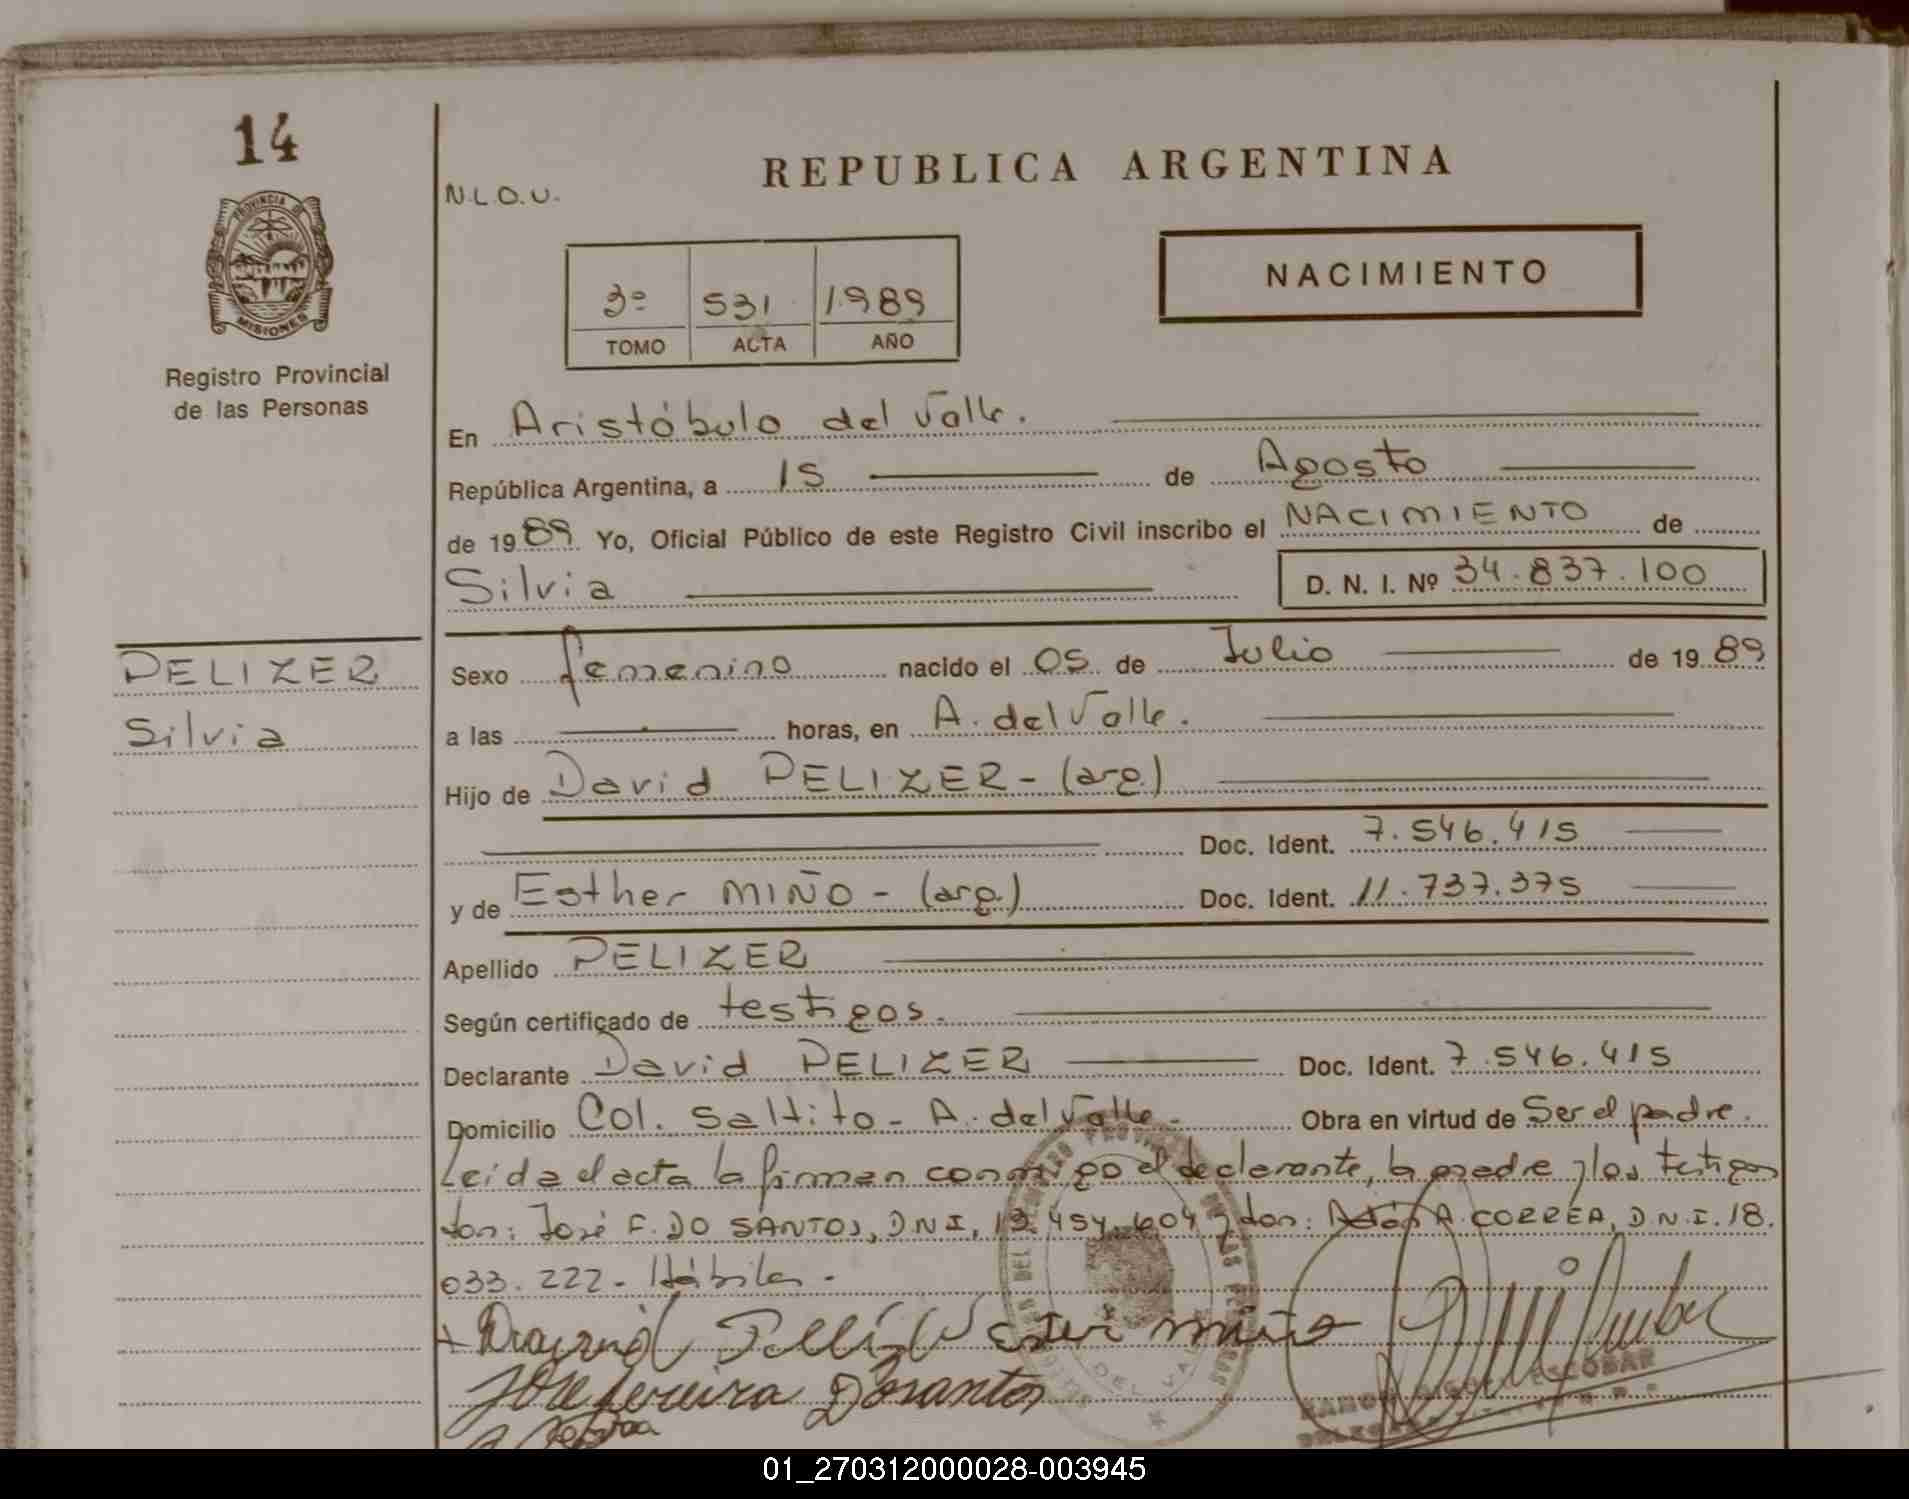 14
N.L.O.U.
REPUBLICA ARGENTINA
PROVINCIA DE
MISIONES
Registro Provincial
de las Personas
3º 531 1.989
TOMO ACTA AÑO
NACIMIENTO
En Aristóbulo del Valle.
República Argentina, a 15 de Agosto
de 1989 Yo, Oficial Público de este Registro Civil inscribo el NACIMIENTO de
Silvia D. N. I. Nº 34.837.100
PELIZER
Silvia
Sexo femenino nacido el 05 de Julio de 1989
a las horas, en A. del Valle.
Hijo de David PELIZER - (arg.)
Doc. Ident. 7.546.415
y de Esther MIÑO - (arg.) Doc. Ident. 11.737.375
Apellido PELIZER
Según certificado de testigos.
Declarante David PELIZER Doc. Ident. 7.546.415
Domicilio Col. Saltito - A. del Valle - Obra en virtud de Ser el padre.
Leída el acta la firman conmigo el declarante, la madre y los testigos
don: José F. DO SANTOS, D.N.I. 454.604 y don: A. CORREA, D.N.I. 18.
033.222 - Hábiles -
Ester miño
Jose fereira Dosantos
ESCOBAR
01_270312000028-003945